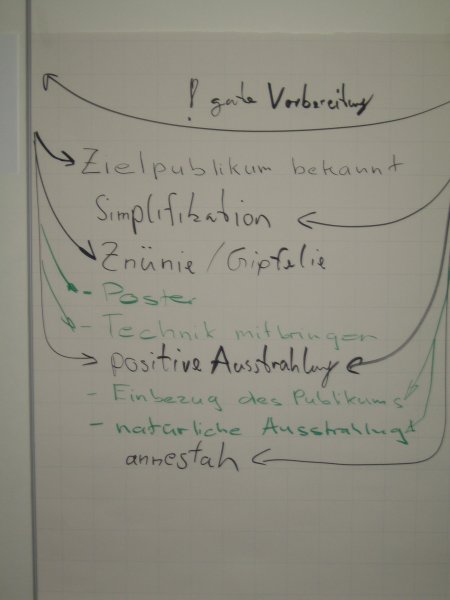 ! gute Vorbereitung
Zielpublikum bekannt
Simplifikation
Znünie / Gipfelie
- Poster
- Technik mitbringen
positive Ausstrahlung
- Einbezug des Publikums
- natürliche Ausstrahlung
annestah